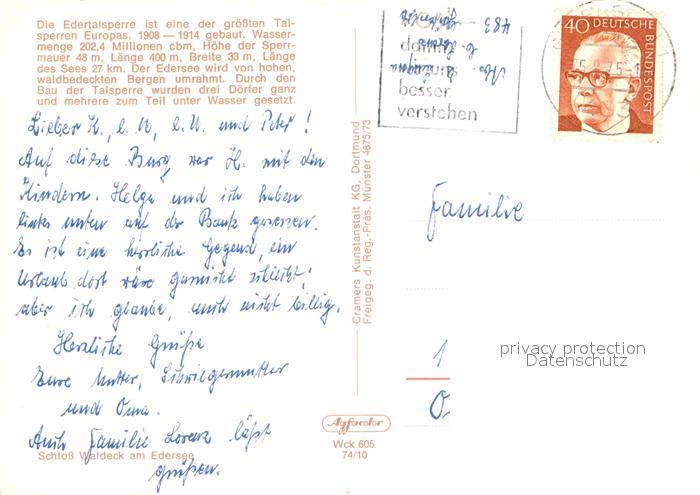 Die Edertalsperre ist eine der größten Tal-
sperren Europas. 1908—1914 gebaut. Wasser-
menge 202,4 Millionen cbm, Höhe der Sperr-
mauer 48 m, Länge 400 m, Breite 33 m, Länge
des Sees 27 km. Der Edersee wird von hohen,
waldbedeckten Bergen umrahmt. Durch den
Bau der Talsperre wurden drei Dörfer ganz
und mehrere zum Teil unter Wasser gesetzt.
Lieber K., l. M, l. U. und Peter!
Auf diese Burg war H. mit den
Kindern. Helga und ich haben
links unten auf der Bank gesessen.
Es ist eine herrliche Gegend, ein
Urlaub dort wäre garnicht schlecht;
aber ich glaube, auch nicht billig.
Herzliche Grüße
Eure Mutter, Schwiegermutter
und Oma.
Auch Familie Lorenz läßt
grüßen.
Schloß Waldeck am Edersee
Cramers Kunstanstalt KG, Dortmund
Freigeg. d. Reg.-Präs. Münster 4875/73
Agfacolor
Wck 605
74/10
damit
besser
verstehen
483
40 DEUTSCHE
BUNDESPOST
Familie
1
O
privacy protection
Datenschutz